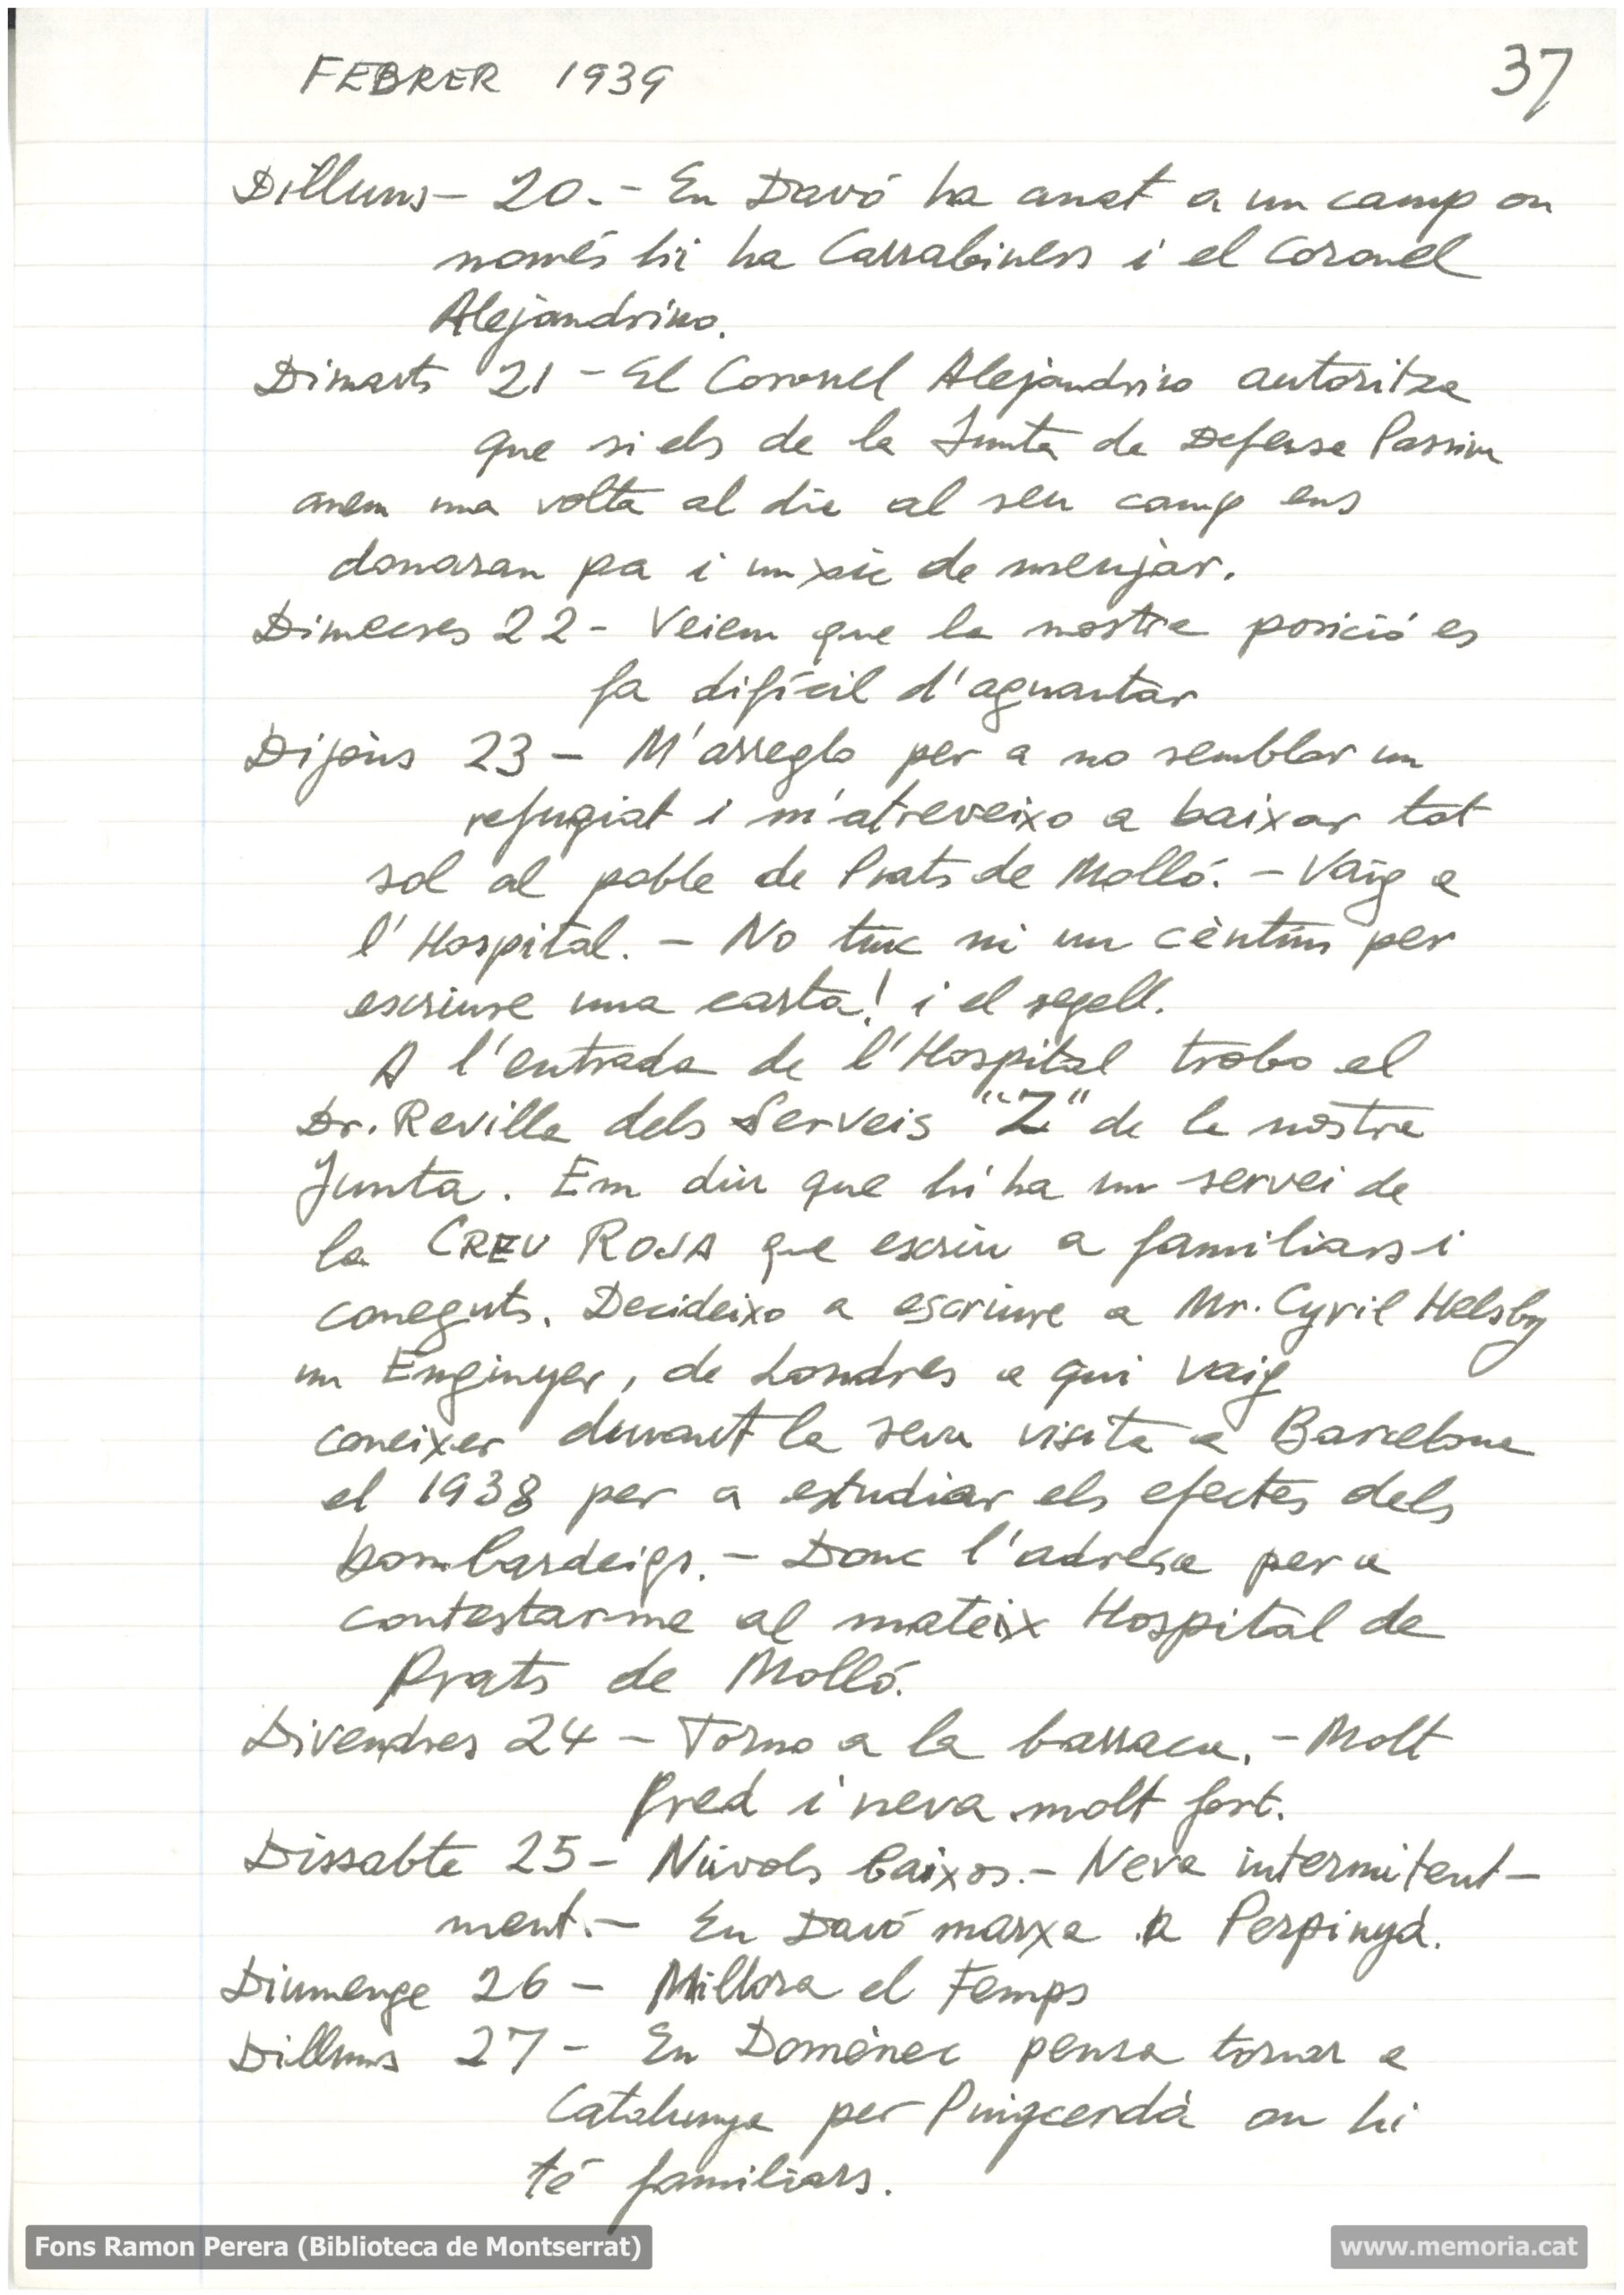 FEBRER 1939
37
Dilluns - 20. - En Davó ha anat a un camp on
només hi ha Carrabiners i el Coronel
Alejandrino.
Dimarts 21 - El Coronel Alejandrino autoritza
que si els de la Junta de Defensa Passiva
anem una volta al dia al seu camp ens
donaran pa i un xic de menjar.
Dimecres 22 - Veiem que la nostra posició es
fa difícil d'aguantar
Dijous 23 - M'arreglo per a no semblar un
refugiat i m'atreveixo a baixar tot
sol al poble de Prats de Molló. - Vaig a
l'Hospital. - No tinc ni un cèntim per
escriure una carta! i el segell.
A l'entrada de l'Hospital trobo el
Dr. Revilla dels Serveis "Z" de la nostra
Junta. Em diu que hi ha un servei de
la CREU ROJA que escriu a familiars i
coneguts. Decideixo a escriure a Mr. Cyril Helsby
un Enginyer, de Londres a qui vaig
coneixer durant la seva visita a Barcelona
el 1938 per a estudiar els efectes dels
bombardeigs. - Donc l'adresa per a
contestar-me al mateix Hospital de
Prats de Molló.
Divendres 24 - Torno a la barraca. - Molt
fred i neva molt fort.
Dissabte 25 - Núvols baixos. - Neva intermitent-
ment. - En Davó marxa a Perpinyá.
Diumenge 26 - Millora el Temps
Dilluns 27 - En Domènec pensa tornar a
Catalunya per Puigcerdà on hi
té familiars.
Fons Ramon Perera (Biblioteca de Montserrat)
www.memoria.cat